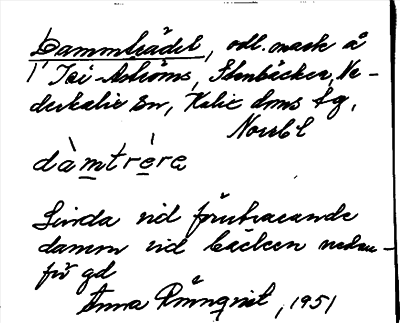 Dammträdet, odl. mark å
Isi-Aströms, Stenbäcken, Ne-
derkalix sn, Kalix dms tg,
Norrb l
dàmtrère
Linda vid förutvarande
damm vid bäcken nedan-
för gd
Anna Rönnqvist, 1951